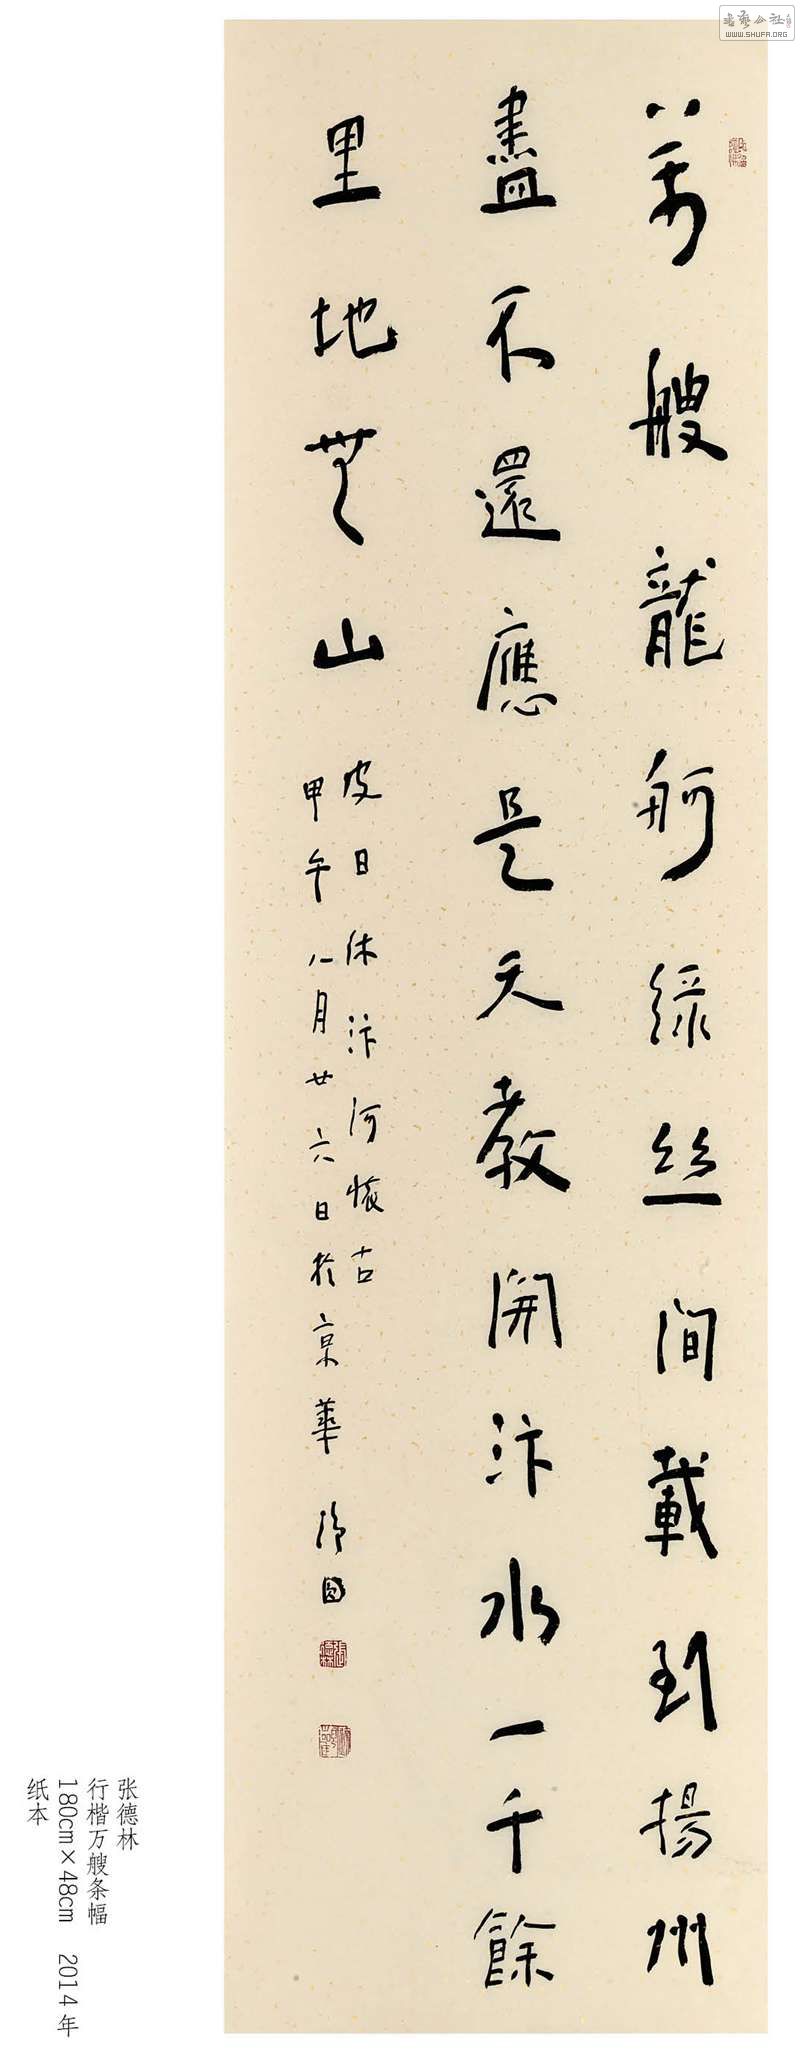 萬艘龍舸綠絲間載到揚州
盡不還應是天教開汴水一千餘
里地無山
皮日休汴河懷古
甲午八月廿六日於京華淨圓
张德林
行楷万艘条幅
180cm×48cm 2014年
纸本
书艺公社
WWW.SHUFA.ORG